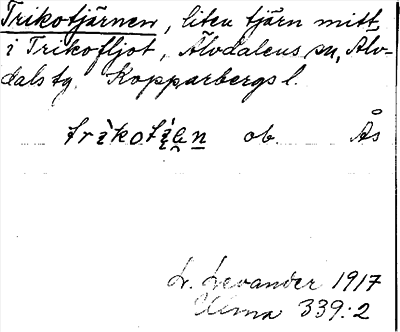 Trikotjärnen, liten tjärn mitt
i Trikofljot, Älvdalens sn, Älv-
dals tg. Kopparbergs l.
ob. Ås
L. Levander 1917
Ulma 339:2